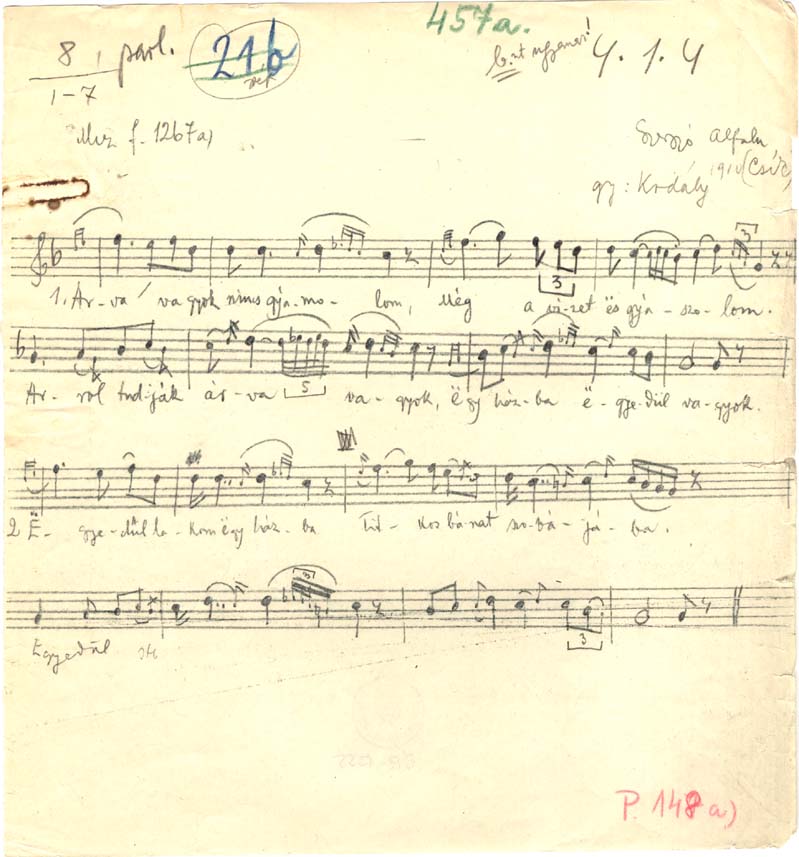 457a.
8, parl. 21b b.-t ugyanez! 4. 1. 4
1-7
Muz f. 1267a) alfalu
1910 (Csík)
gy: Kodály
3
1. Ár-va vagyok nincs gyá-mo-lom, Még a vi-zet ës gyá-szo-lom.
3
Ar-ról tud-ják ár-va va-gyok, ëgy ház-ba ë-gye-dül va-gyok.
5
2 Ë-gye-dül la-kom ëgy ház-ba Tit-kos bá-nat szo-bá-já-ba.
3
Ëgyedül stb
3
P. 148 a)